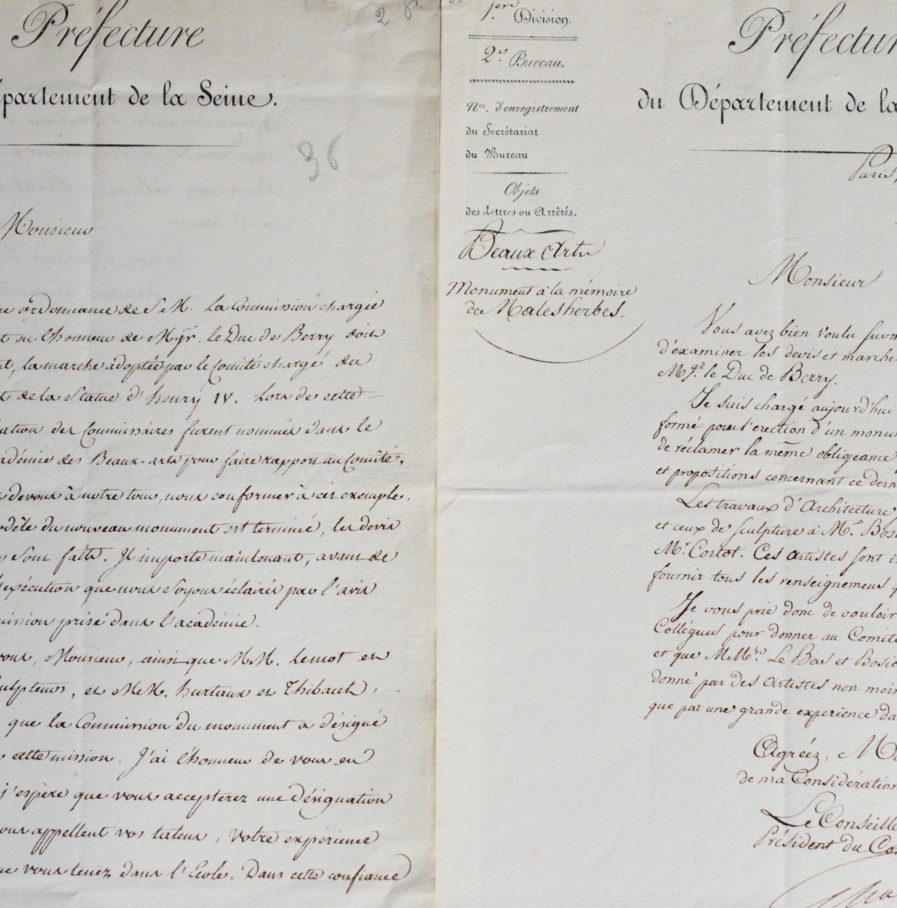 Préfecture
épartement de la Seine.
96
Monsieur
ordonnance de S.M. La Commission chargée
l'honneur de Mgr. le Duc de Berry doit
la marche adoptée par le Comité chargé de
de la Statue d'henry IV. Lors de cette
ation des Commissaires furent nommés dans le
cadémie des Beaux-arts pour faire rapport au Comité.
devons à notre tour, nous conformer à cet exemple.
odèle du nouveau monument est terminé, les devis
sont faits. Il importe maintenant, avant de
l'exécution que nous soyons éclairés par l'avis
mission prise dans l'académie.
vous, Monsieur, ainsi que MM. Lemot et
culpteurs, et MM. hurtaux et Thibault,
que la Commission du monument a désigné
cette mission. J'ai l'honneur de vous en
j'espère que vous accepterez une désignation
vous appellent vos talens, votre expérience
que vous tenez dans l'Ecole. Dans cette confiance
1ère Division.
2e Bureau.
Nos. d'enregistrement
du Secrétariat
du Bureau
Objets
des Lettres ou Arrêtés.
Beaux Arts
Monument à la mémoire
de Malesherbes.
Préfectur
du Département de la
Paris,
Monsieur
Vous avez bien voulu
d'examiner les devis et marché
Mgr. le Duc de Berry.
Je suis chargé aujourd'hui
formé pour l'erection d'un monu
de réclamer la même obligeance
et propositions concernant ce dern
Les travaux d'Architecture
et ceux de sculpture à Mr. Bos
Mr. Cortot. Ces artistes sont
fournir tous les renseignemens
Je vous prie donc de vouloir
Collègues pour donner au Comité
et que MMrs. Le Bas et Bosio
donné par des artistes non moins
que par une grande experience da
Agréez, M
de ma Considération
Le Conseille
Président du Co